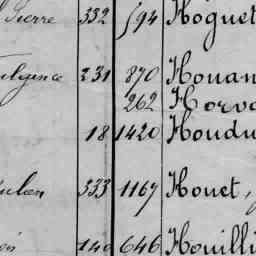 Pierre 332 594 Hoguet
231 870 Houan
262 Horva
18 1420 Houdu
333 1167 Houet,
140 646 Houilli